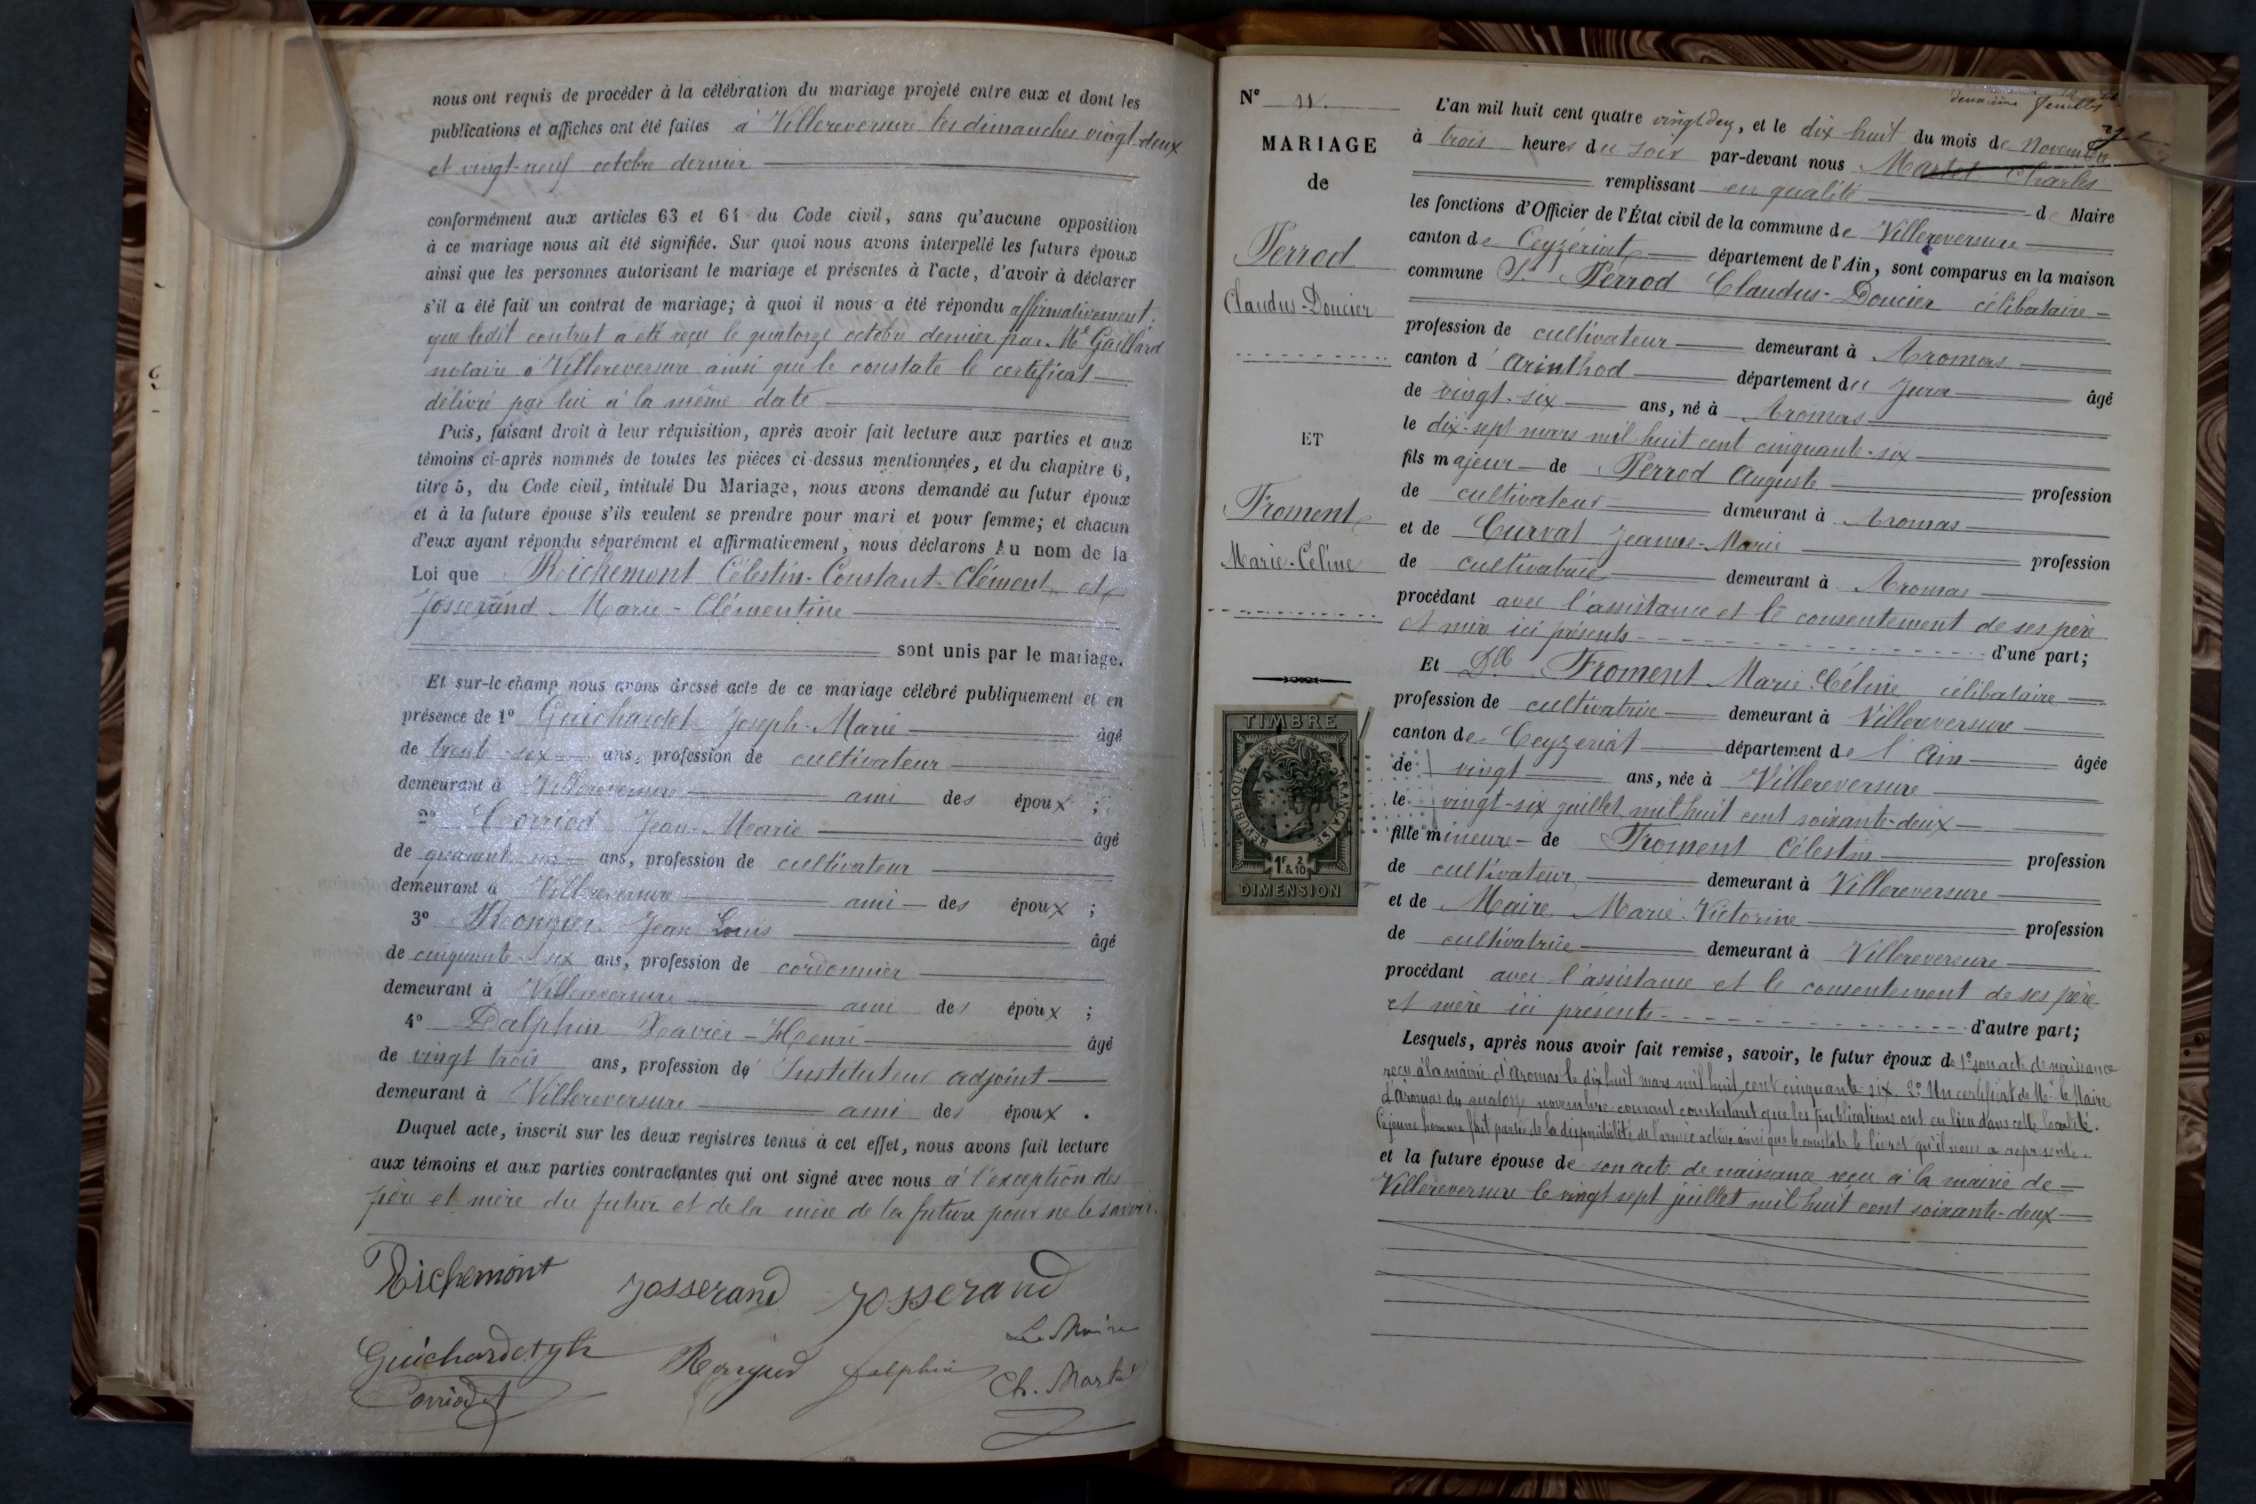 nous ont requis de procéder à la célébration du mariage projeté entre eux et dont les
publications et affiches ont été faites à Villereversure les dimanches vingt-deux
et vingt-neuf octobre dernier
conformément aux articles 63 et 64 du Code civil, sans qu'aucune opposition
à ce mariage nous ait été signifiée. Sur quoi nous avons interpellé les futurs époux
ainsi que les personnes autorisant le mariage et présentes à l'acte, d'avoir à déclarer
s'il a été fait un contrat de mariage; à quoi il nous a été répondu affirmativement.
que ledit contrat a été reçu le quatorze octobre dernier par Me Gaillard
notaire à Villereversure ainsi que le constate le certificat
délivré par lui à la même date
Puis, faisant droit à leur réquisition, après avoir fait lecture aux parties et aux
témoins ci-après nommés de toutes les pièces ci-dessus mentionnées, et du chapitre 6,
titre 5, du Code civil, intitulé Du Mariage, nous avons demandé au futur époux
et à la future épouse s'ils veulent se prendre pour mari et pour femme; et chacun
d'eux ayant répondu séparément et affirmativement, nous déclarons Au nom de la
Loi que Richemont Célestin-Constant-Clément et
Josserand Marie-Clémentine
sont unis par le mariage.
Et sur-le champ nous avons dressé acte de ce mariage célébré publiquement et en
présence de 1° Guichardet Joseph-Marie âgé
de trente-six ans, profession de cultivateur
demeurant à Villereversure ami des époux ;
2° Corriod Jean-Marie âgé
de quarante ans, profession de cultivateur
demeurant à Villereversure ami des époux ;
3° Jean Louis âgé
de cinquante-six ans, profession de cordonnier
demeurant à Villereversure ami des époux ;
4° Dalphin Xavier-Henri âgé
de vingt trois ans, profession de Instituteur adjoint
demeurant à Villereversure ami des époux .
Duquel acte, inscrit sur les deux registres tenus à cet effet, nous avons fait lecture
aux témoins et aux parties contractantes qui ont signé avec nous à l'exception des
père et mère du futur et de la mère de la future pour ne le savoir.
Richemont Josserand Josserand
Le Maire
Guichardet Dalphin Ch. Martel
deuxième feuillet
N°
MARIAGE
de
Perrod
Claudus-Doucier
ET
Froment
Marie-Céline
TIMBRE
RÉPUBLIQUE FRANÇAISE
1F & 2/10
DIMENSION
L'an mil huit cent quatre vingt deux, et le dix huit du mois de Novembre
à trois heures du soir par-devant nous Martel Charles
remplissant en qualité de Maire
les fonctions d'Officier de l'État civil de la commune de Villereversure
canton de Ceyzériat département de l'Ain, sont comparus en la maison
commune Sr Perrod Claudus-Doucier célibataire
profession de cultivateur demeurant à Aromas
canton d'Arinthod département du Jura âgé
de vingt-six ans, né à Aromas
le dix-sept mars mil huit cent cinquante-six
fils majeur de Perrod Auguste profession
de cultivateur demeurant à Aromas
et de Curvat Jeanne-Marie profession
de cultivatrice demeurant à Aromas
procédant avec l'assistance et le consentement de ses père
et mère ici présents d'une part;
Et Dlle Froment Marie-Céline célibataire
profession de cultivatrice demeurant à Villereversure
canton de Ceyzériat département de l'Ain âgée
de vingt ans, née à Villereversure
le vingt-six juillet mil huit cent soixante-deux
fille mineure de Froment Célestin profession
de cultivateur demeurant à Villereversure
et de Maire Marie-Victorine profession
de cultivatrice demeurant à Villereversure
procédant avec l'assistance et le consentement de ses père
et mère ici présents d'autre part;
Lesquels, après nous avoir fait remise, savoir, le futur époux de 1° son acte de naissance
reçu à la mairie d'Aromas le dix huit mars mil huit cent cinquante-six. 2° Un certificat de Mr le Maire
d'Aromas du quatorze novembre courant constatant que les publications ont eu lieu dans cette localité.
Ce jeune homme fait partie de la disponibilité de l'armée active ainsi que le constate le livret qu'il nous a représenté.
et la future épouse de son acte de naissance reçu à la mairie de
Villereversure le vingt sept juillet mil huit cent soixante-deux